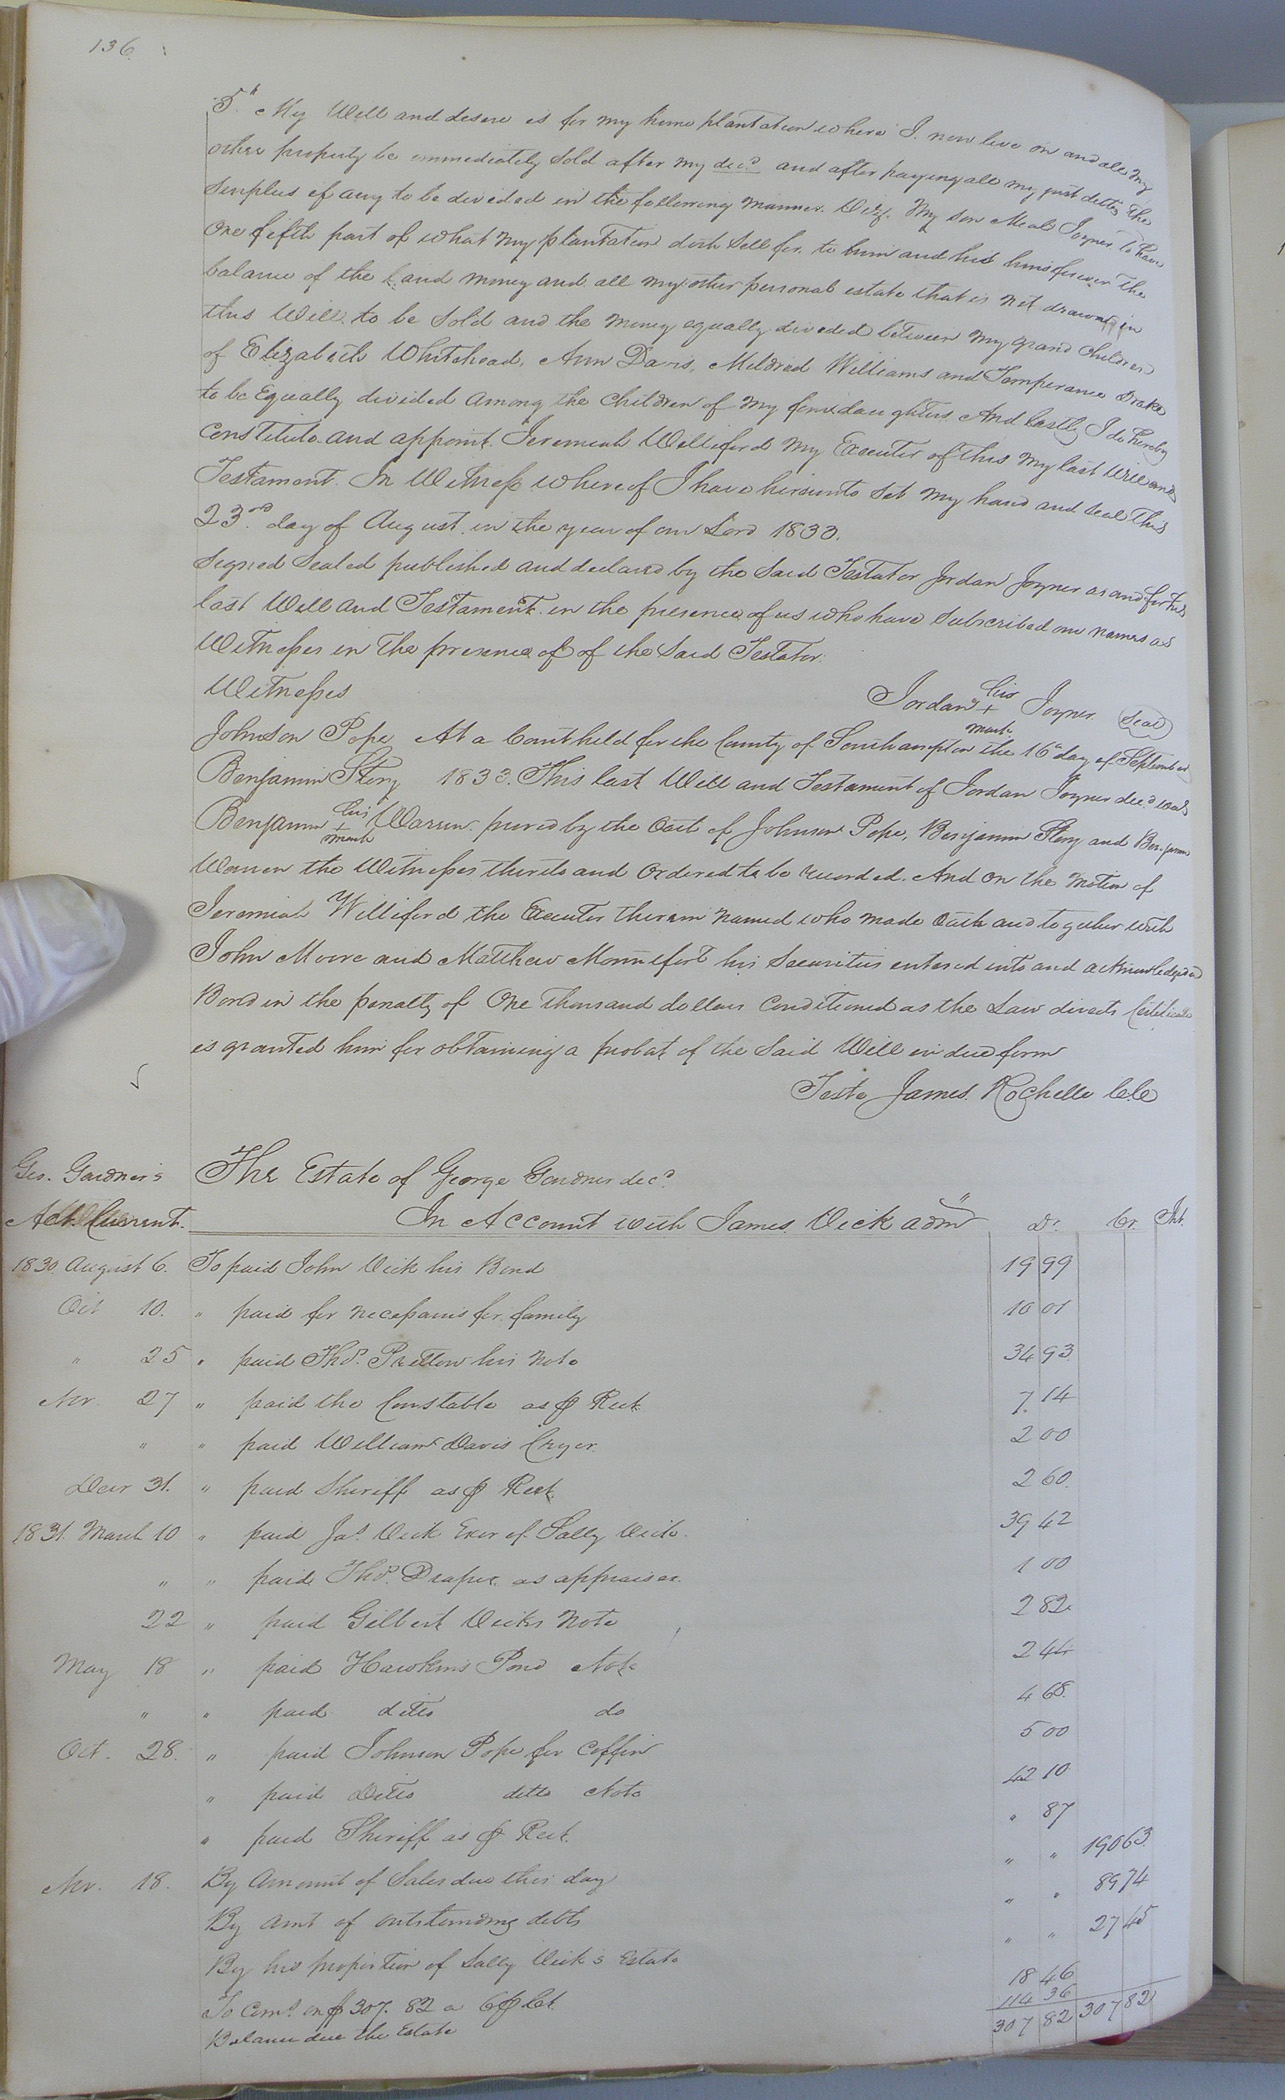 136
5th My Will and desire is for my home plantation where I now live on and all my
other property be immediately Sold after my decd. and after paying all my just debts the
Surplus if any to be divided in the following manner. Viz. My son Meal Joyner to have
One fifth part of what my plantation doth Sell for to him and his heirs forever the
balance of the Land money and all my other personal estate that is not drawn in
this Will to be Sold and the money equally divided between my grand Children
of Elizabeth Whitehead, Ann Davis, Mildred Williams and Temperance Drake
to be Equally divided among the Children of my four daughters. And lastly I do hereby
Constitute and appoint Jeremiah Williford my Executor of this my last Will and
Testament. In Witness whereof I have hereunto Set my hand and seal this
23rd day of August in the year of our Lord 1833.
Signed Sealed published and declared by the Said Testator Jordan Joyner as and for his
last Will and Testament in the presence of us who have Subscribed our names as
Witnesses in the presence of of the Said Testator.
Witnesses Jordan his + mark Joyner (Seal)
Johnson Pope At a Court held for the County of Southampton the 16th day of September
Benjamin Story 1833. This last Will and Testament of Jordan Joyner decd was
Benjamin his + mark Warren proved by the Oath of Johnson Pope, Benjamin Story and Benjamin
Warren the Witnesses thereto and Ordered to be recorded. And On the Motion of
Jeremiah Williford the Executor therein named who made Oath and together with
John Moore and Matthew Monnifort his Securities entered into and acknowledged a
Bond in the penalty of One Thousand dollars Conditioned as the Law directs Certificate
is granted him for obtaining a probat of the Said Will in due form
Teste James Rochelle C.C.
Geo. Gardner's The Estate of George Gardner decd.
Act. Current. In Account with James Vick admr Dr. Cr. Int.
1830 August 6. To paid John Vick his Bond 19 99
Oct 10. " paid for necessaries for family 10 01
" 25 " paid Thos. Pretlow his Note 34 93
Nov. 27 " paid the Constable as pr Rect 7. 14
" " paid William Davis Cryer. 2 00
Decr 31. " paid Sheriff as pr Rect. 2 60.
1831. March 10 " paid Jas. Vick Exor of Sally Vick. 39 42
" " paid Thos. Draper as appraiser. 1 00
22 " paid Gilbert Vicks Note 2 82
May 18 " paid Hawkins Pond Note 2 44
" " paid ditto do 4 68.
Oct. 28. " paid Johnson Pope for Coffin 5 00
" paid Ditto ditto Note 42 10
" paid Sheriff as pr Rect. " 87
Nov. 18. By Amount of Sales due this day " " 190 63
By amt of outstanding debts " " 89 74
By his proportion of Sally Vick's Estate " " 27 45
To Coms. on $307. 82 a 6 pr Ct. 18 46
Balance due the Estate 114 36
307 82 307 82